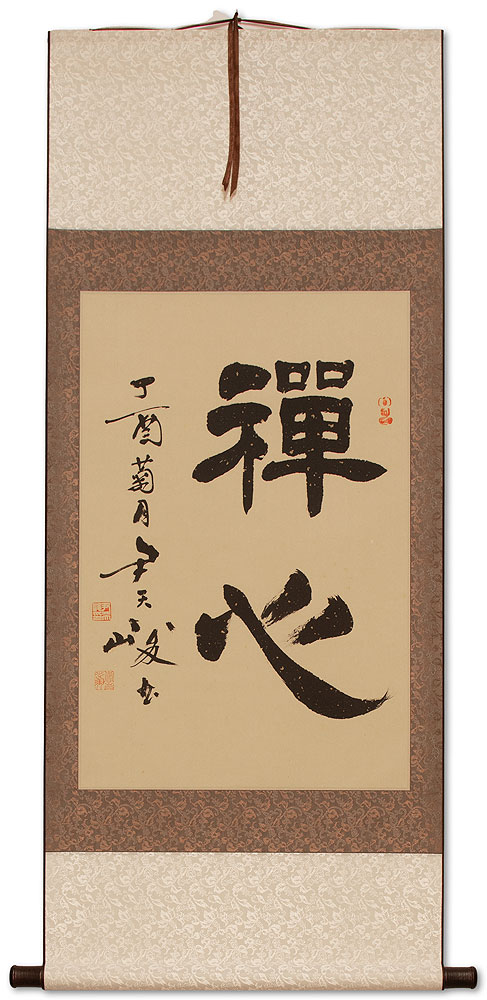 禪心
丁酉菊月尹天峻书